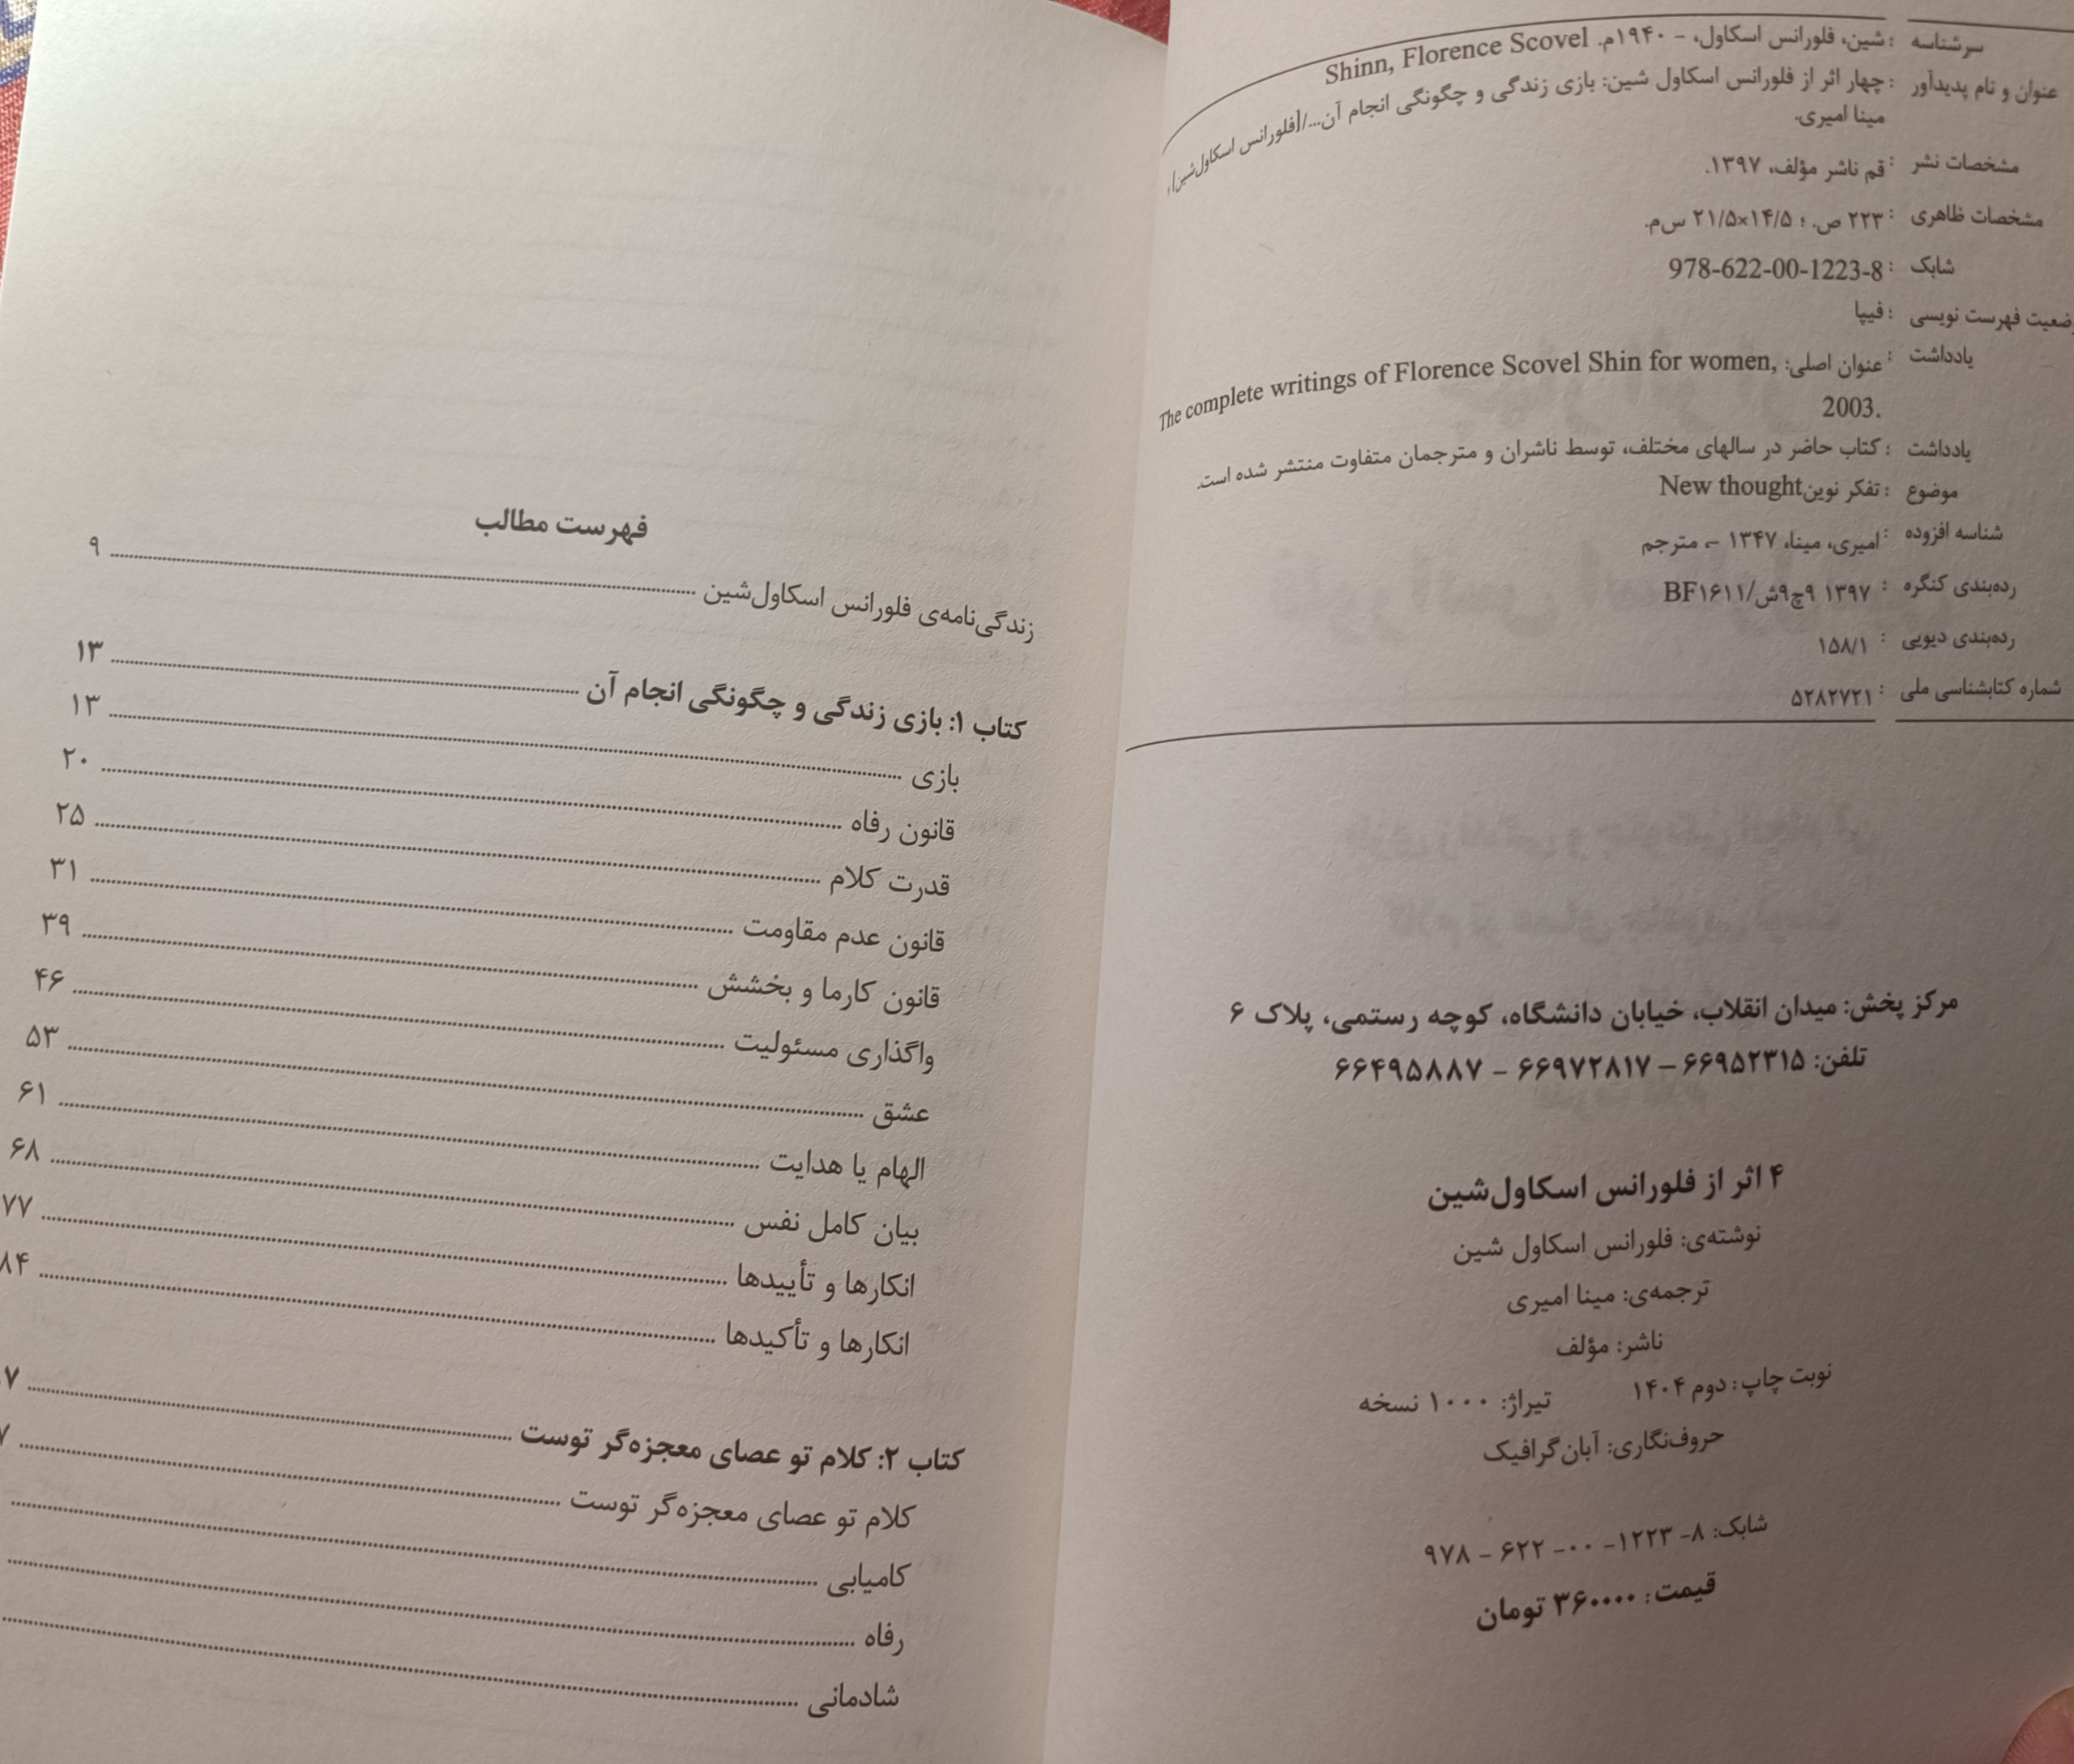 سرشناسه : شین، فلورانس اسکاول، - ۱۹۴۰م. Shinn, Florence Scovel
عنوان و نام پدیدآور : چهار اثر از فلورانس اسکاول شین: بازی زندگی و چگونگی انجام آن.../[فلورانس اسکاول‌شین]؛
مینا امیری.
مشخصات نشر : قم ناشر مؤلف، ۱۳۹۷.
مشخصات ظاهری : ۲۲۳ ص. ؛ ۲۱/۵×۱۴/۵ س‌م.
شابک : 978-622-00-1223-8
وضعیت فهرست نویسی : فیپا
یادداشت : عنوان اصلی: The complete writings of Florence Scovel Shin for women,
2003.
یادداشت : کتاب حاضر در سالهای مختلف، توسط ناشران و مترجمان متفاوت منتشر شده است.
موضوع : تفکر نوین New thought
شناسه افزوده : امیری، مینا، ۱۳۴۷ -، مترجم
رده‌بندی کنگره : ۱۳۹۷ ۹چ۹ش/BF۱۶۱۱
رده‌بندی دیویی : ۱۵۸/۱
شماره کتابشناسی ملی : ۵۲۸۲۷۲۱
مرکز پخش: میدان انقلاب، خیابان دانشگاه، کوچه رستمی، پلاک ۶
تلفن: ۶۶۹۵۲۳۱۵ – ۶۶۹۷۲۸۱۷ – ۶۶۴۹۵۸۸۷
۴ اثر از فلورانس اسکاول‌شین
نوشته‌ی: فلورانس اسکاول شین
ترجمه‌ی: مینا امیری
ناشر: مؤلف
نوبت چاپ: دوم ۱۴۰۴ تیراژ: ۱۰۰۰ نسخه
حروف‌نگاری: آبان‌گرافیک
شابک: ۸- ۱۲۲۳- ۰۰- ۶۲۲ – ۹۷۸
قیمت: ۳۶۰۰۰۰ تومان
فهرست مطالب
زندگی‌نامه‌ی فلورانس اسکاول‌شین ۹
کتاب ۱: بازی زندگی و چگونگی انجام آن ۱۳
بازی ۱۳
قانون رفاه ۲۰
قدرت کلام ۲۵
قانون عدم مقاومت ۳۱
قانون کارما و بخشش ۳۹
واگذاری مسئولیت ۴۶
عشق ۵۳
الهام یا هدایت ۶۱
بیان کامل نفس ۶۸
انکارها و تأییدها ۷۷
انکارها و تأکیدها ۸۴
کتاب ۲: کلام تو عصای معجزه‌گر توست
کلام تو عصای معجزه‌گر توست
کامیابی
رفاه
شادمانی